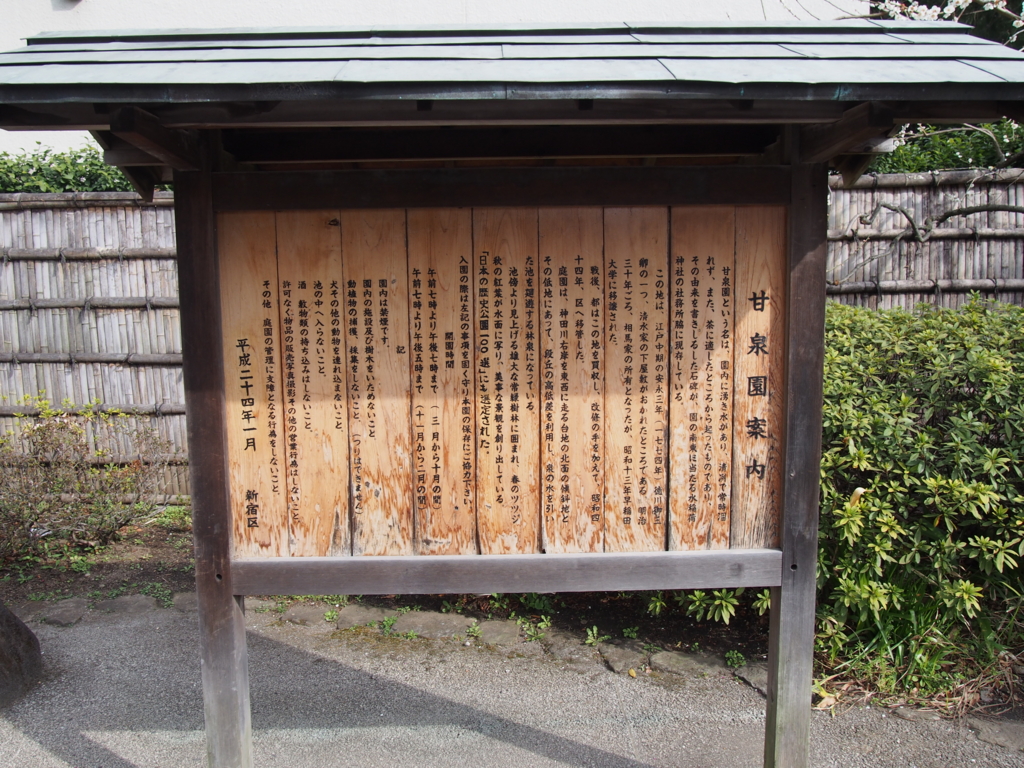 甘泉園案内
甘泉園という名は、園内に湧き水があり、清冽で常時涸
れず、また、茶に適したところから起ったものであり、
その由来を書きしるした石碑が、園の南東に当たる水稲荷
神社の社務所脇に現存している。
この地は、江戸中期の安永三年(一七七四年)徳川御三
卿の一つ、清水家の下屋敷がおかれたところである。明治
三十年ごろ、相馬家の所有となったが、昭和十三年早稲田
大学に移譲された。
戦後、都はこの地を買収し、改修の手を加えて、昭和四
十四年、区へ移管した。
庭園は、神田川右岸を東西に走る台地の北面の傾斜地と
その低地にあって、段丘の高低差を利用し、泉の水を引い
た池を廻遊する林泉になっている。
池傍より見上げる雄大な常緑樹林に囲まれ、春のツツジ
秋の紅葉が水面に写り、美事な景観を創り出している。
「日本の歴史公園100選」にも選定された。
入園の際は左記の事項を固く守り本園の保存にご協力下さい
開園時間
午前七時より午後七時まで (三月から十月の間)
午前七時より午後五時まで (十一月から二月の間)
記
園内は禁煙です。
園内の施設及び樹木をいためないこと
動植物の捕獲、採集をしないこと (つりはできません)
犬その他の動物を連れ込まないこと
池の中へ入らないこと。
酒 穀物類の持ち込みはしないこと。
許可なく物品の販売写真撮影その他の営業行為はしないこと。
その他、庭園の管理に支障となる行為をしないこと。
平成二十四年一月
新宿区